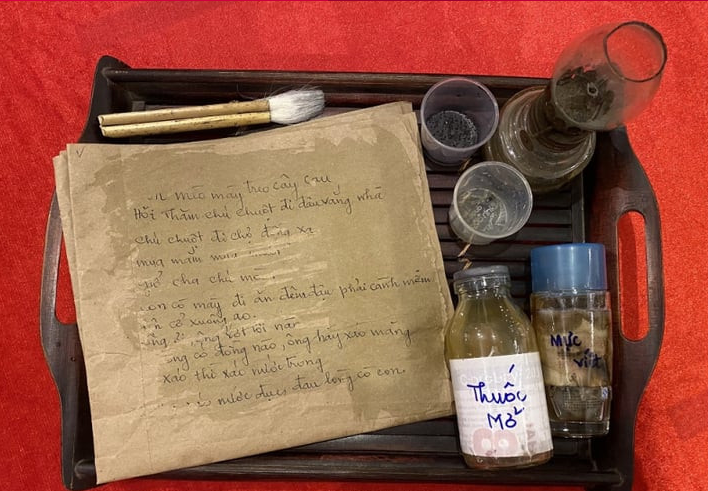 mèo mày treo cây cau
Hỏi Thăm chú chuột đi đâu vắng nhà
chú chuột đi chợ đường xa
mua mắm mua muối
giỗ cha chú mèo.
con cò mày đi ăn đêm đậu phải cành mềm
cổ xuống ao.
ông ơi, ông vớt tôi nao
ông có lòng nào, ông hãy xáo măng
xáo thì xáo nước trong
nước đục đau lòng cò con.
Thuốc
Mờ
Mực
viết